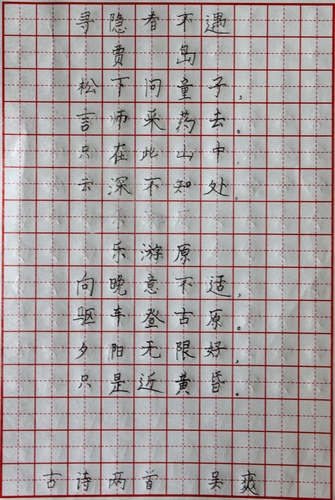 寻隐者不遇
贾岛
松下问童子，
言师采药去。
只在此山中
云深不知处。
乐游原
向晚意不适，
驱车登古原。
夕阳无限好，
只是近黄昏。
古诗两首 吴爽